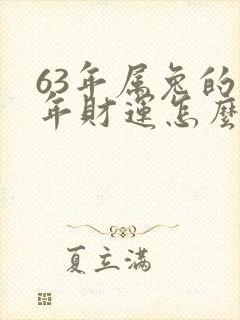 63年属兔的
年财运怎麽
夏立满